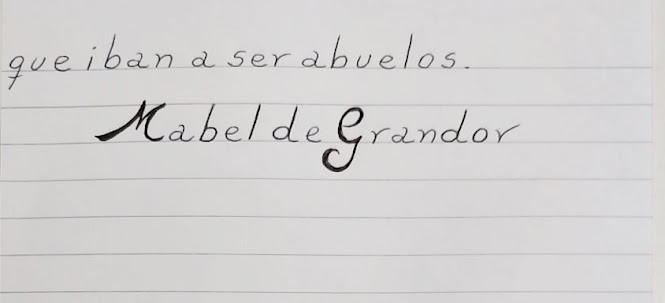 que iban a ser abuelos.
Mabel de Grandor